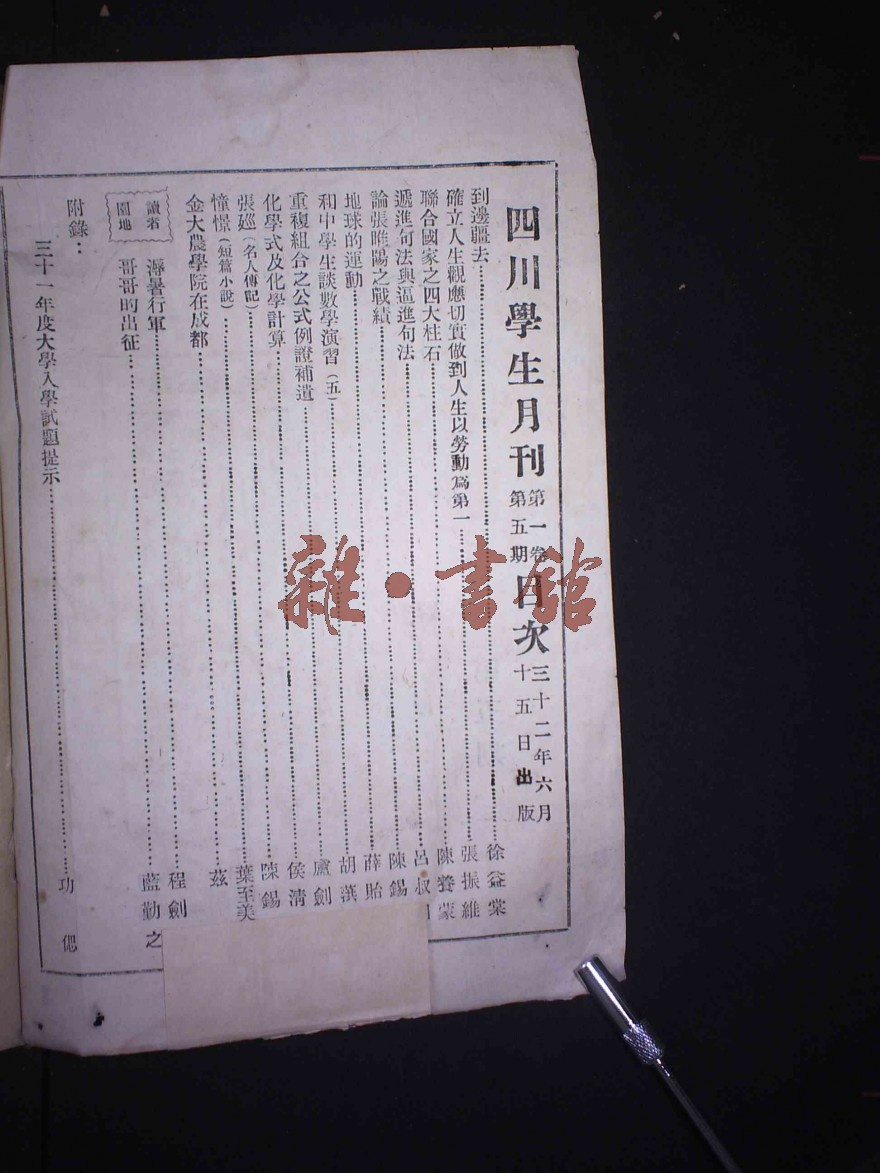 四川學生月刊 第一卷第五期 目次 三十二年六月十五日出版
到邊疆去……徐益棠
確立人生觀應切實做到人生以勞動爲第一……張振維
聯合國家之四大柱石……陳養蒙
遞進句法與逼進句法……呂叔
論張睢陽之戰績……陳錫
地球的運動……薛貽
和中學生談數學演習(五)……胡
重複組合之公式例證補遺……盧劍
化學式及化學計算……侯清
張廵(名人傳記)……陳錫
憧憬(短篇小說)……葉至美
金大農學院在成都……茲
讀者園地
溽暑行軍……程劍
哥哥的出征……藍勤之
附錄：
三十一年度大學入學試題提示……功偲
雜·書館